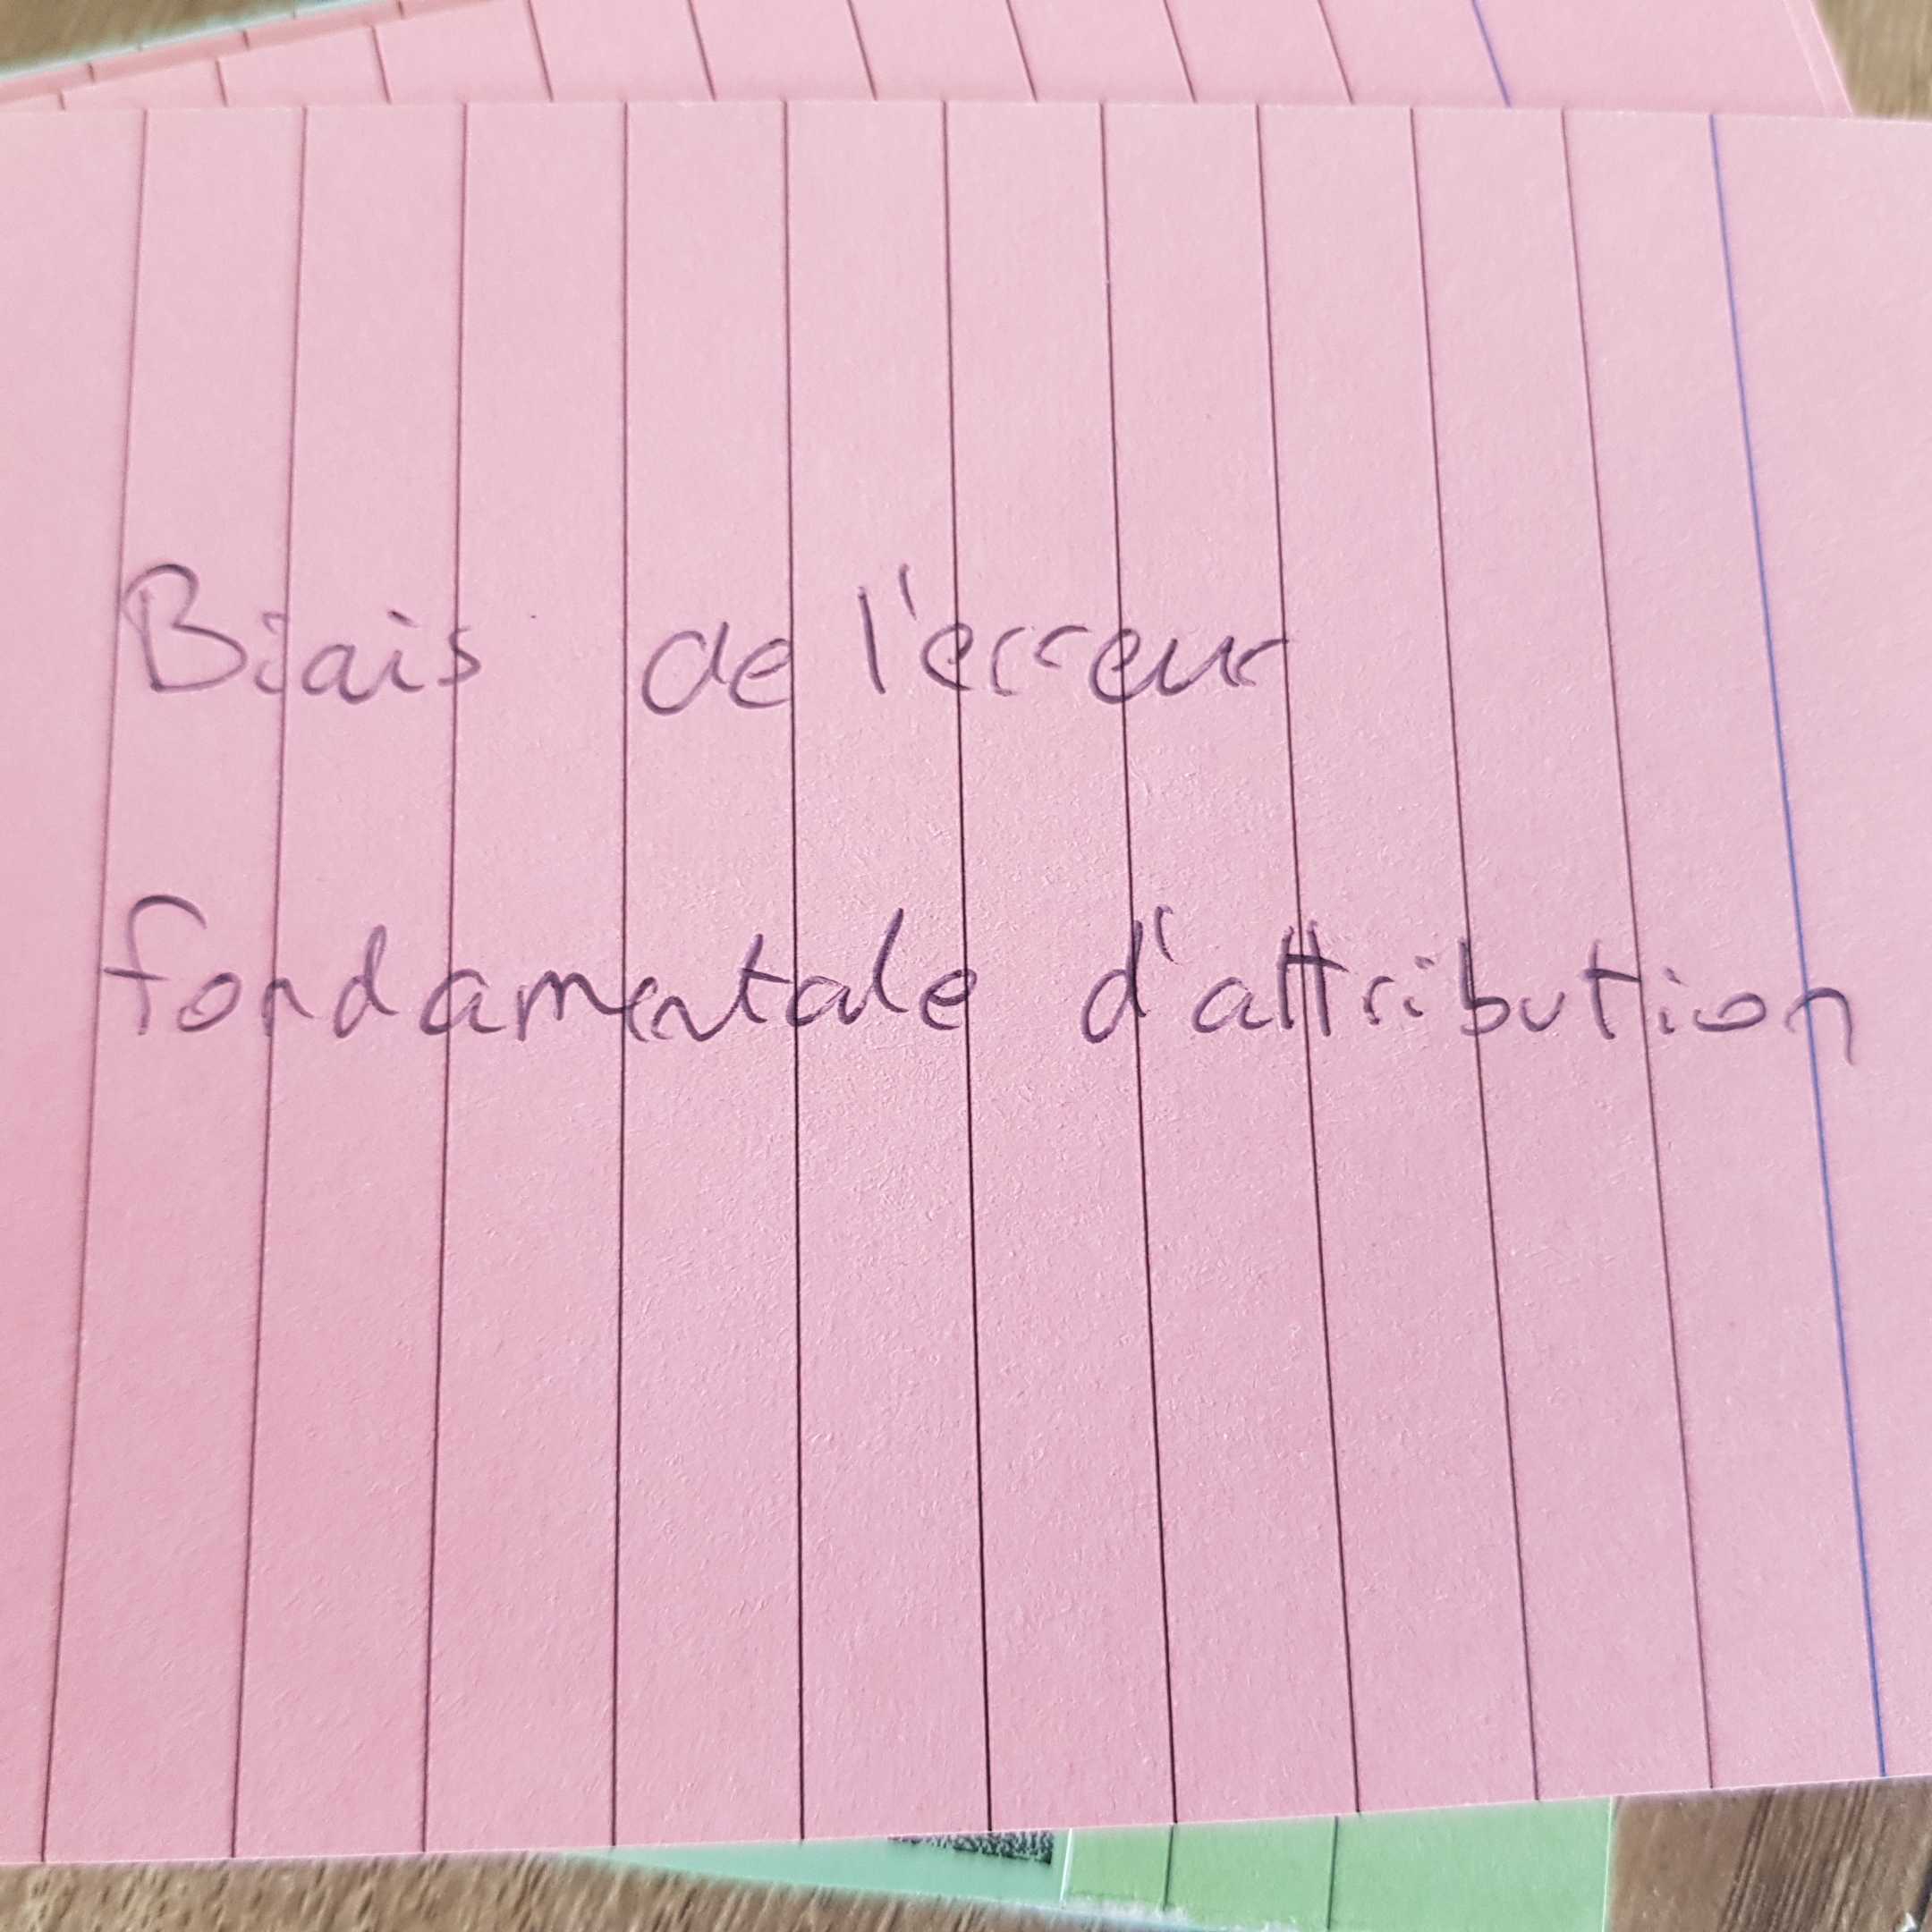 Biais de l'erreur
fondamentale d'attribution